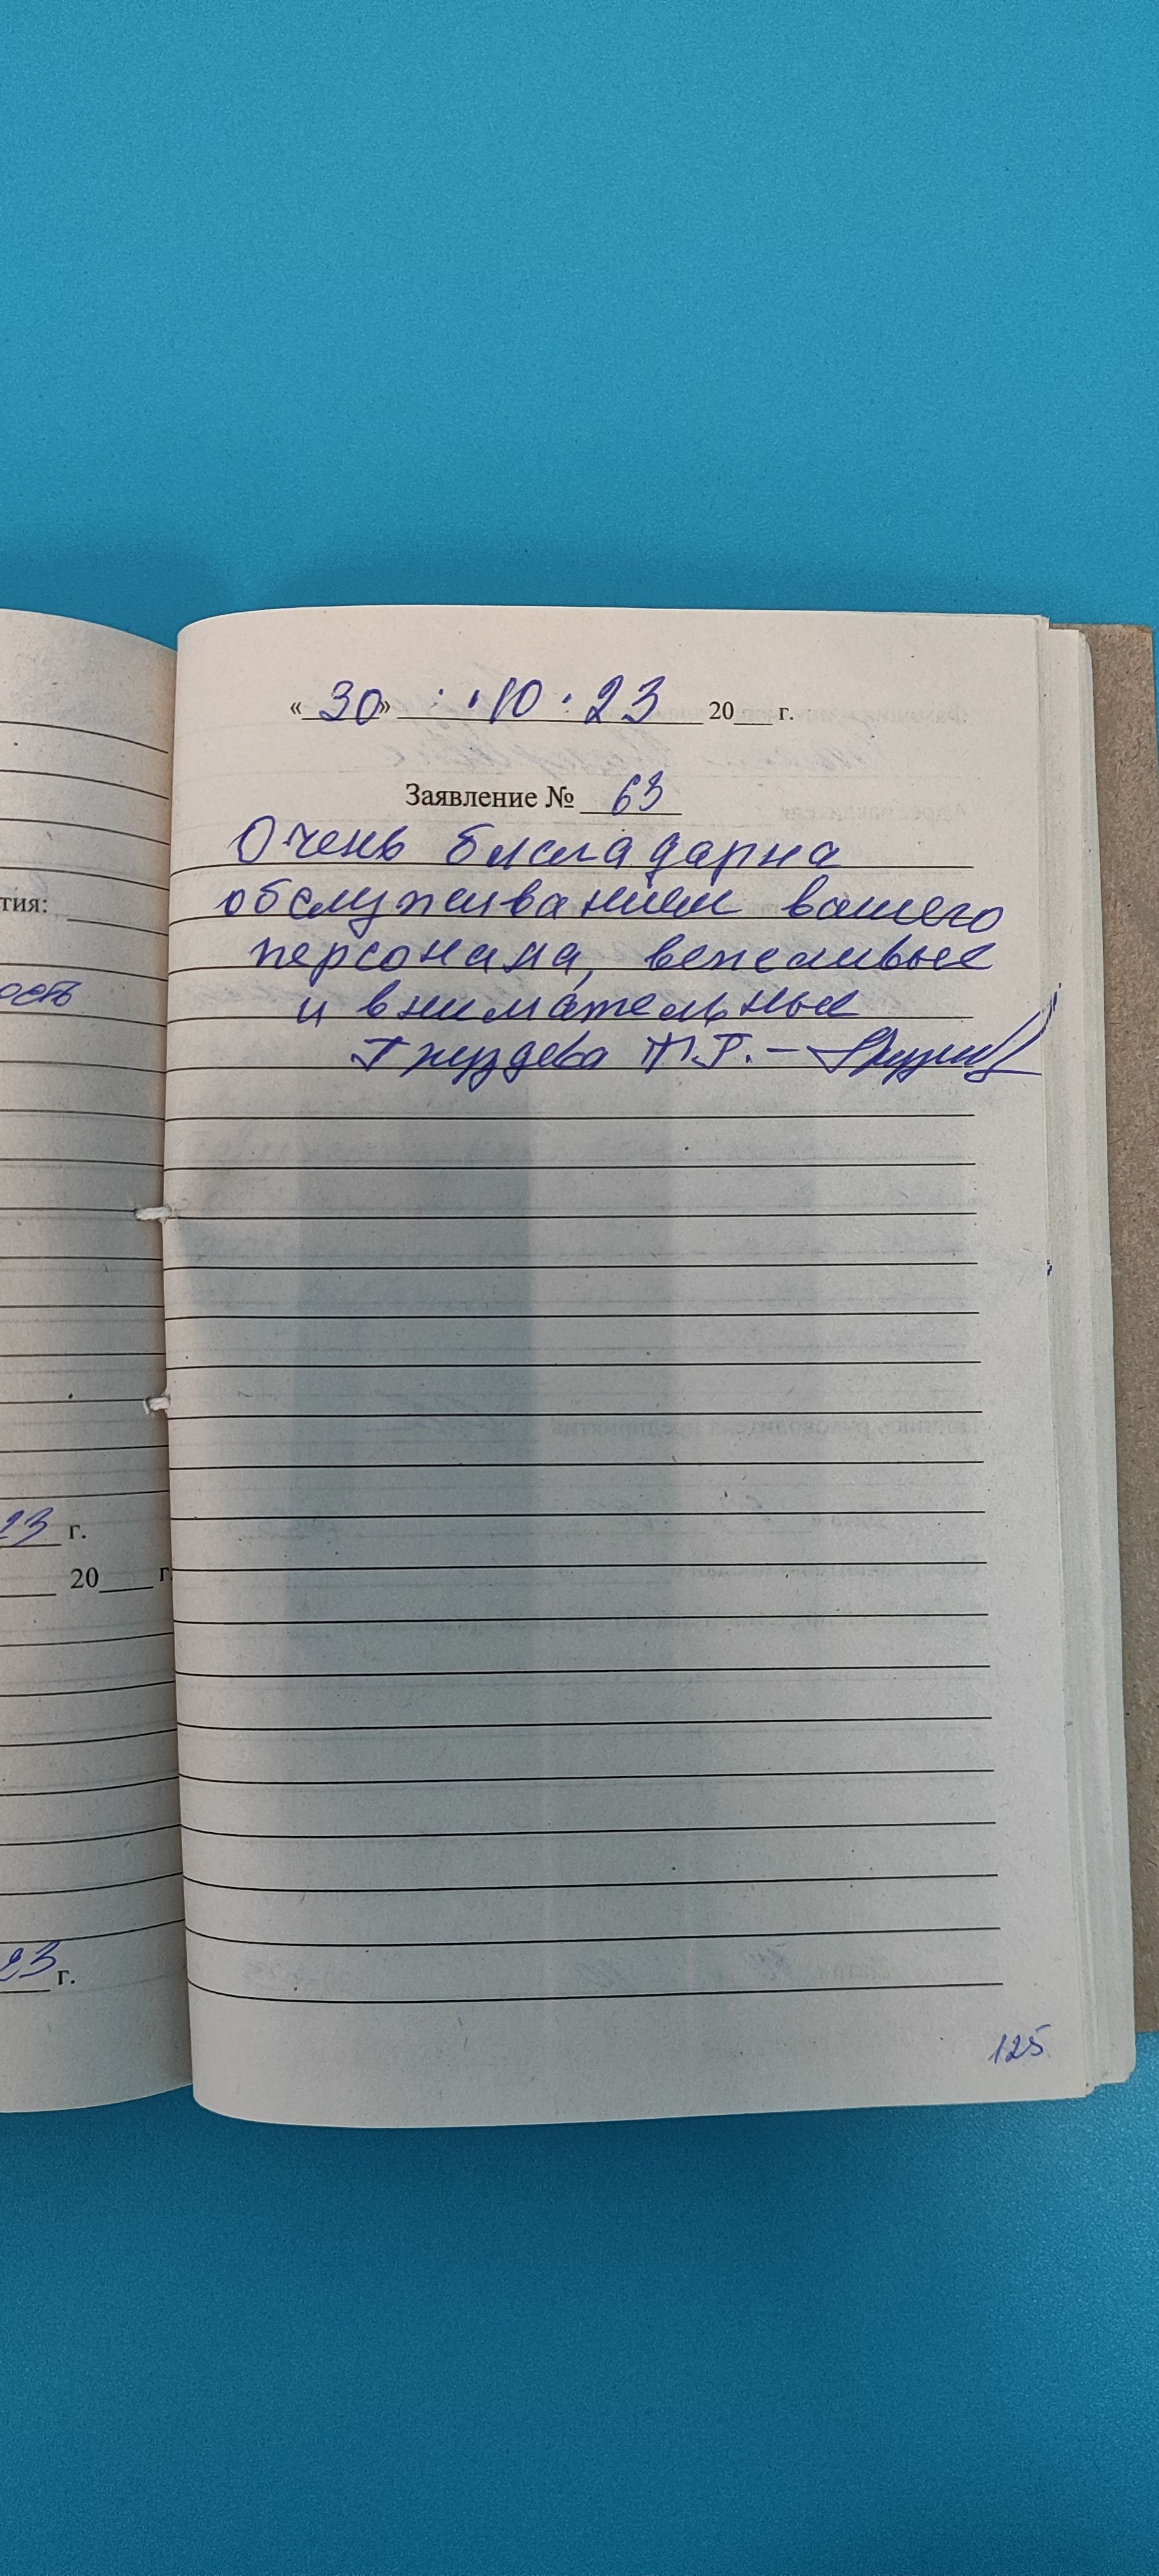 « 30 » · 10 · 23 20___ г.
Заявление № 63
Очень благадарна
обслуживанием вашего
персонала, вежливые
и внимательные
Груздева М.Г. –
тия:
ость
23 г.
20___ г
23 г.
125